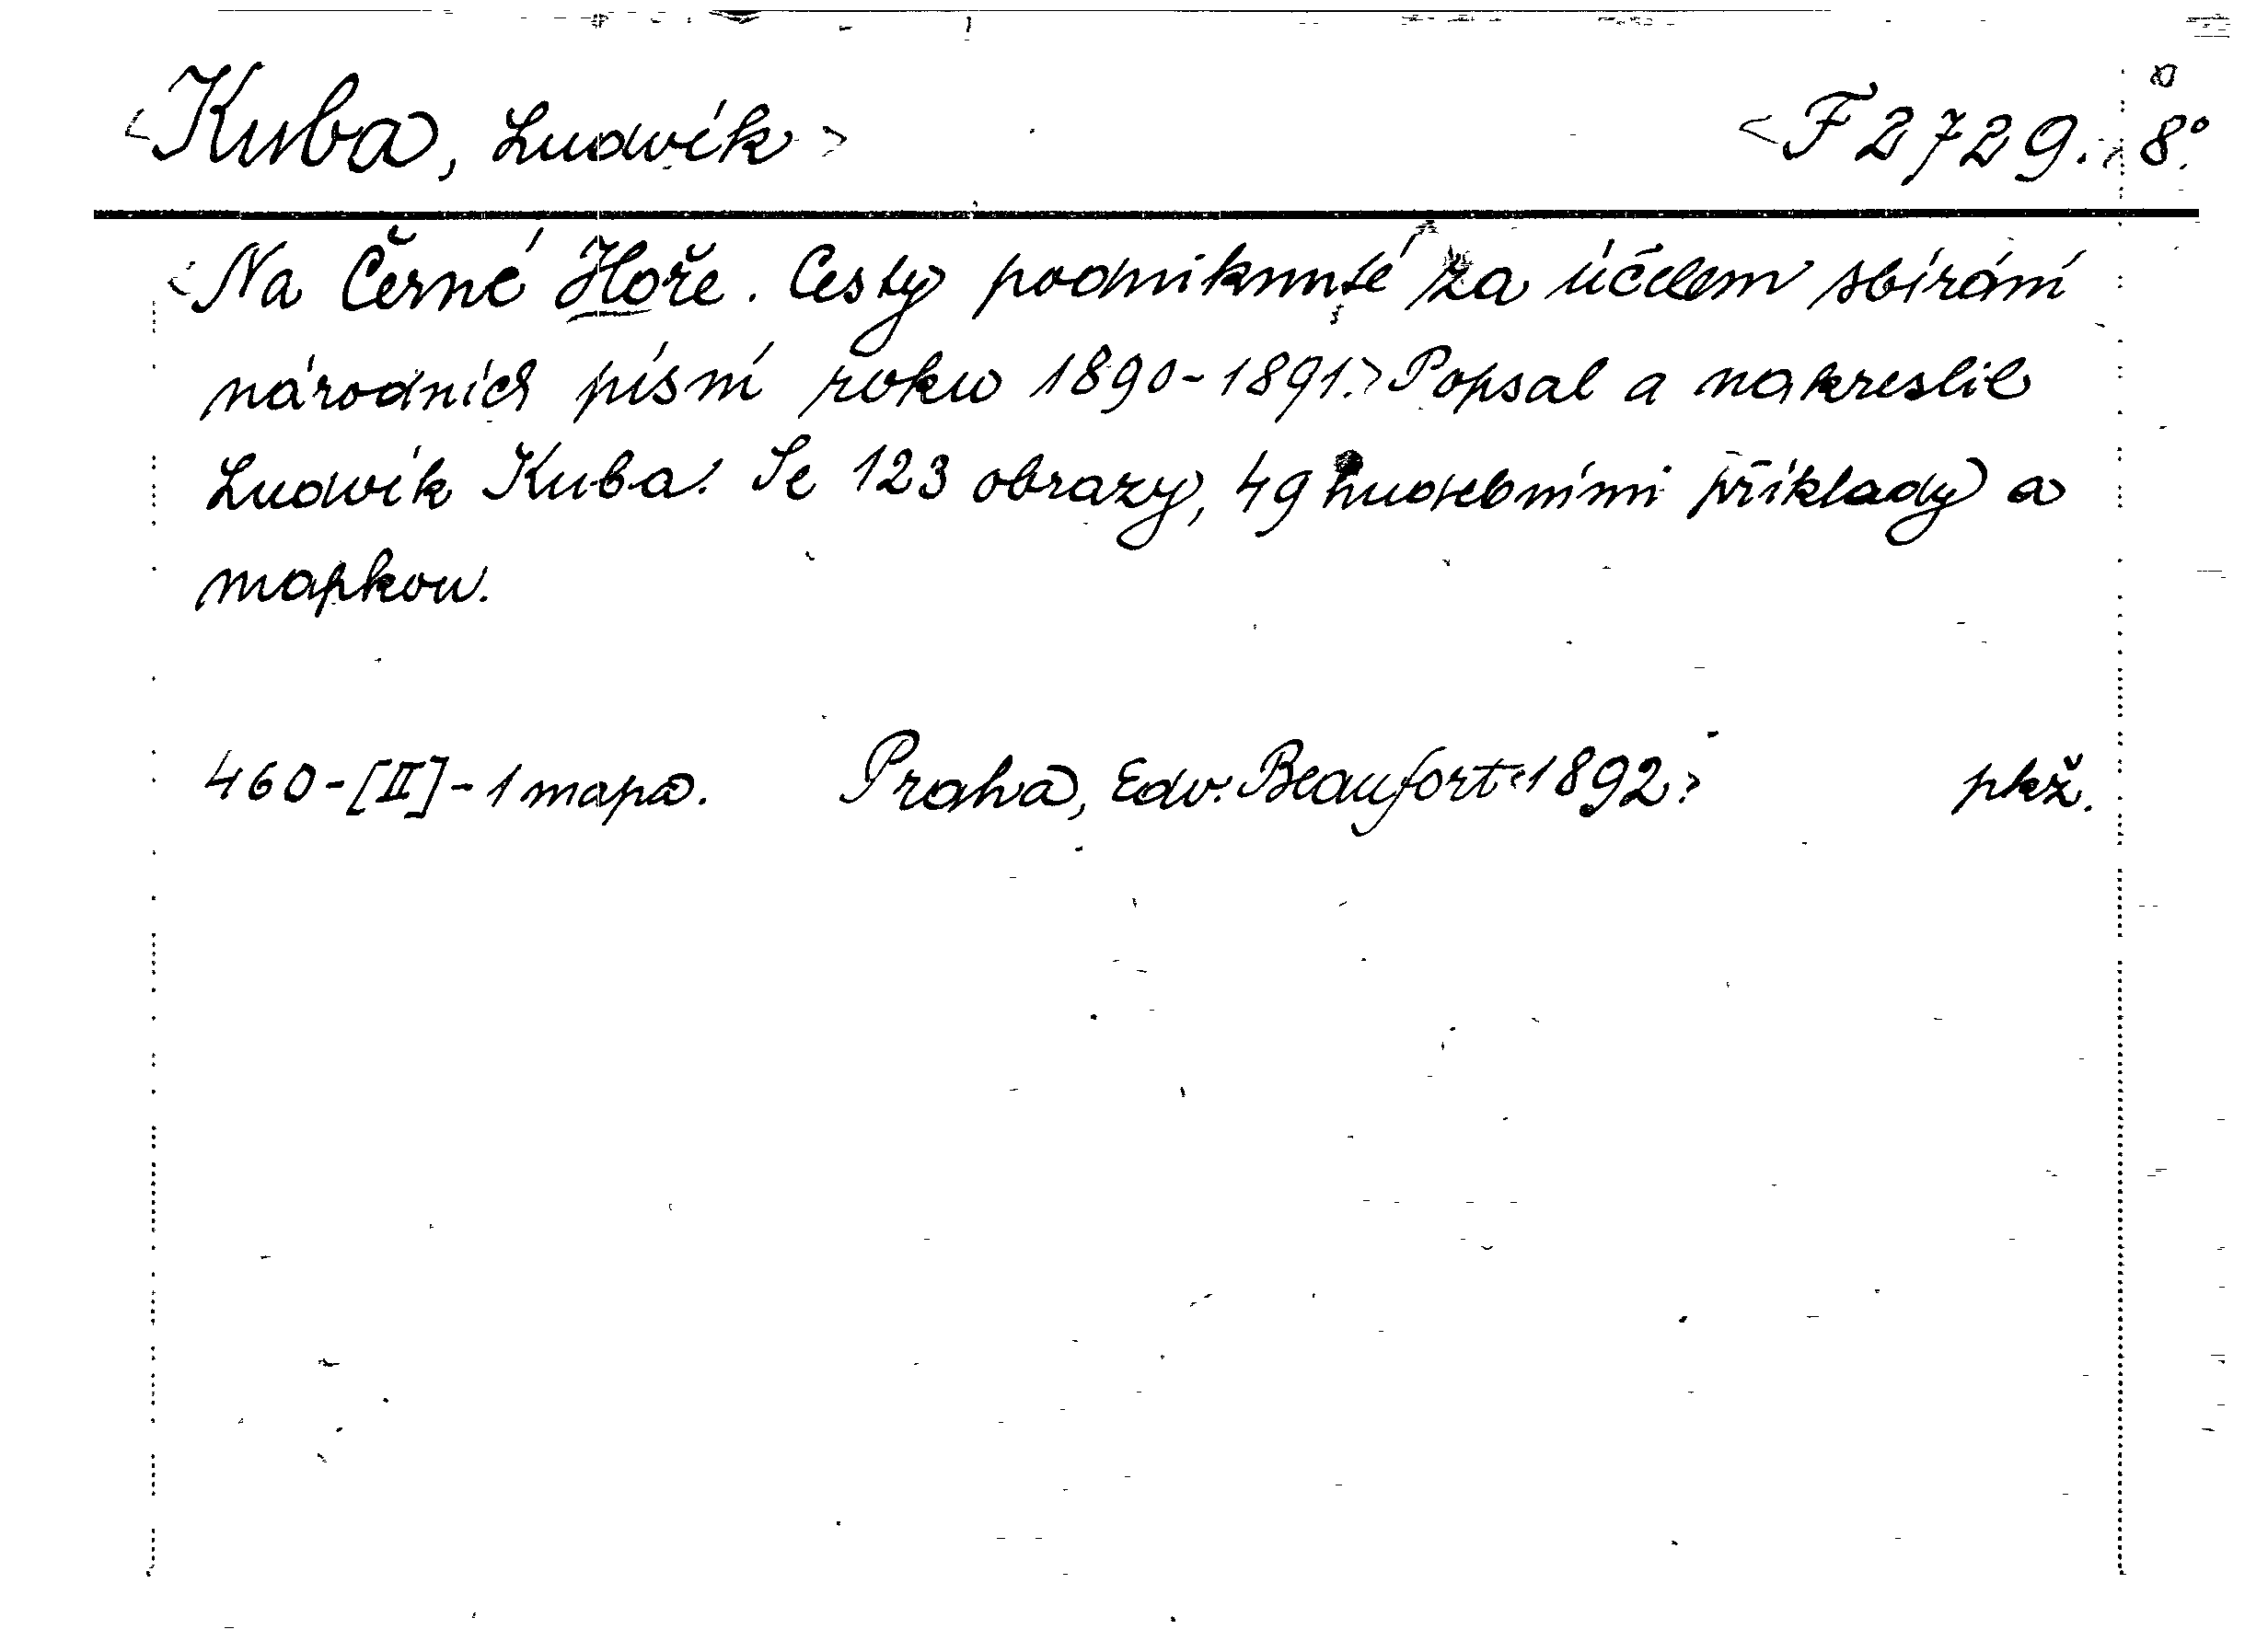 <Kuba, Ludvík> <F 2729.> 8°.
<Na Černé Hoře. Cesty podniknuté za účelem sbírání
národních písní roku 1890-1891.> Popsal a nakreslil
Ludvík Kuba. Se 123 obrazy, 49 hudebními příklady a
mapkou.
460-[II]-1 mapa. Praha, Edv. Beaufort <1892.> pkž.